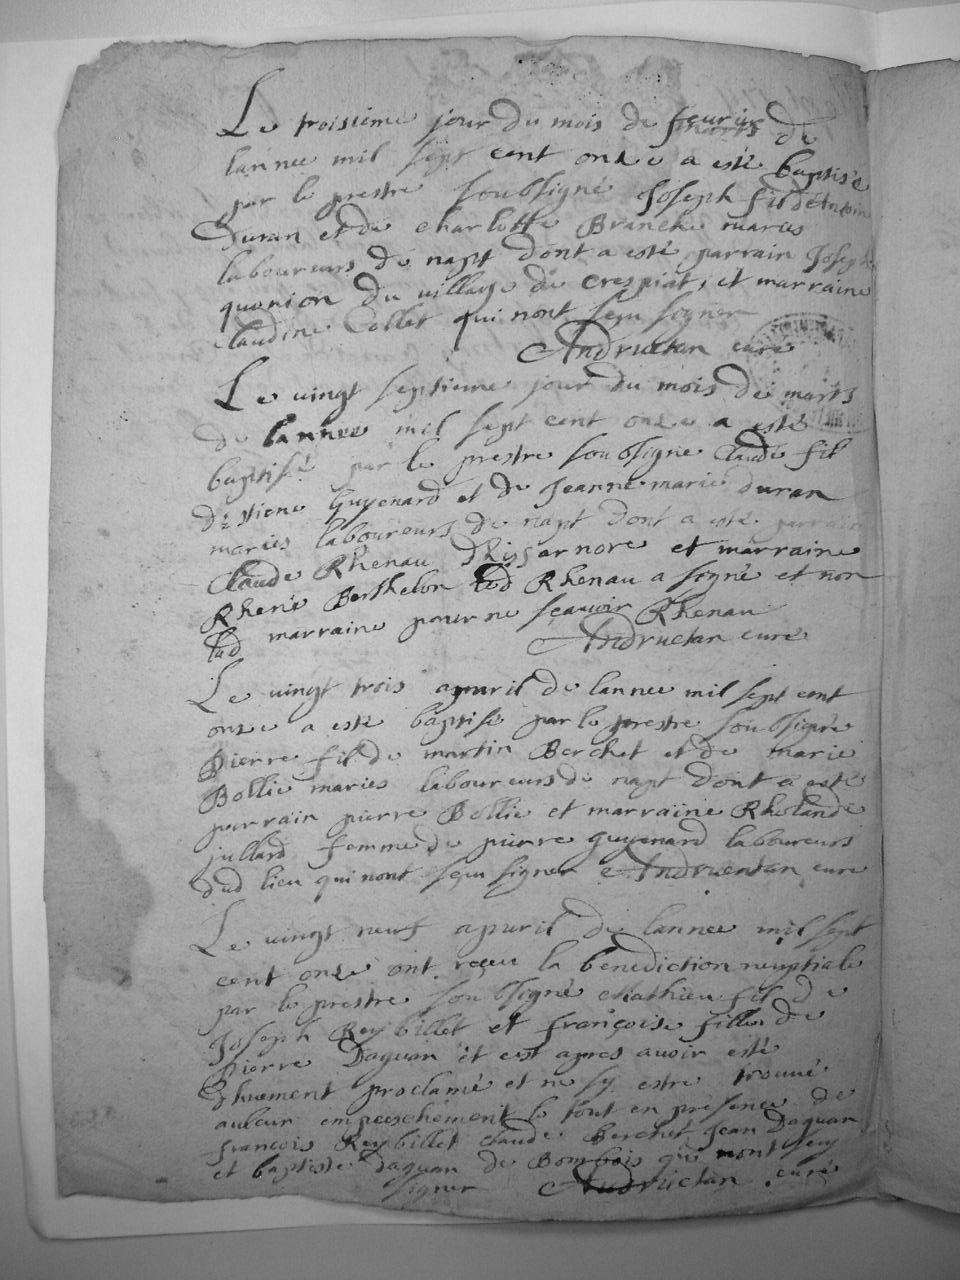 Le troisieme jour du mois de feurier de
lannee mil sept cent onze a esté baptisé
par le prestre soubsigné Joseph fil dAntoine
Duran et de charlotte Branche maries
laboureurs de napt dont a esté parrain Joseph
quonion du village de crespiat, et marraine
claudine Collet qui nont sçeu signer
Andruetan curé
Le vingt septieme jour du mois de marts
de lannee mil sept cent onze a esté
baptisé par le prestre soubsigne Claude fil
destiene Guyenard et de Jeanne marie duran
maries laboureurs de napt dont a esté parrain
Claude Rhenau dhissarnore et marraine
Rhenée Berthelon led Rhenau a signé et non
lad marraine pour ne sçauoir Rhenau
Andruetan curé
Le vingt trois apuril de lannee mil sept cent
onze a esté baptisé par le prestre soubsigné
pierre fil de martin Berchet et de marie
Bollie maries laboureurs de napt dont a esté
parrain pierre Bollie et marraine Rholande
jullard femme de pierre guyenard laboureurs
dud lieu qui nont sçeu signer Andruetan curé
Le vingt neuf apuril de lannee mil sept
cent onze ont reçeu la benediction neuptiale
par le prestre soubsigné Mathieu fil de
Joseph Reybillet et françoise fille de
pierre Daguan et cest apres auoir esté
dhuement proclamé et ne sy estre trouué
auleun empeeschement le tout en presence de
francois Reybillet claude Berchet Jean Daguan
et baptiste daguan de Bombois qui nont sceu
signer Andruetan curé